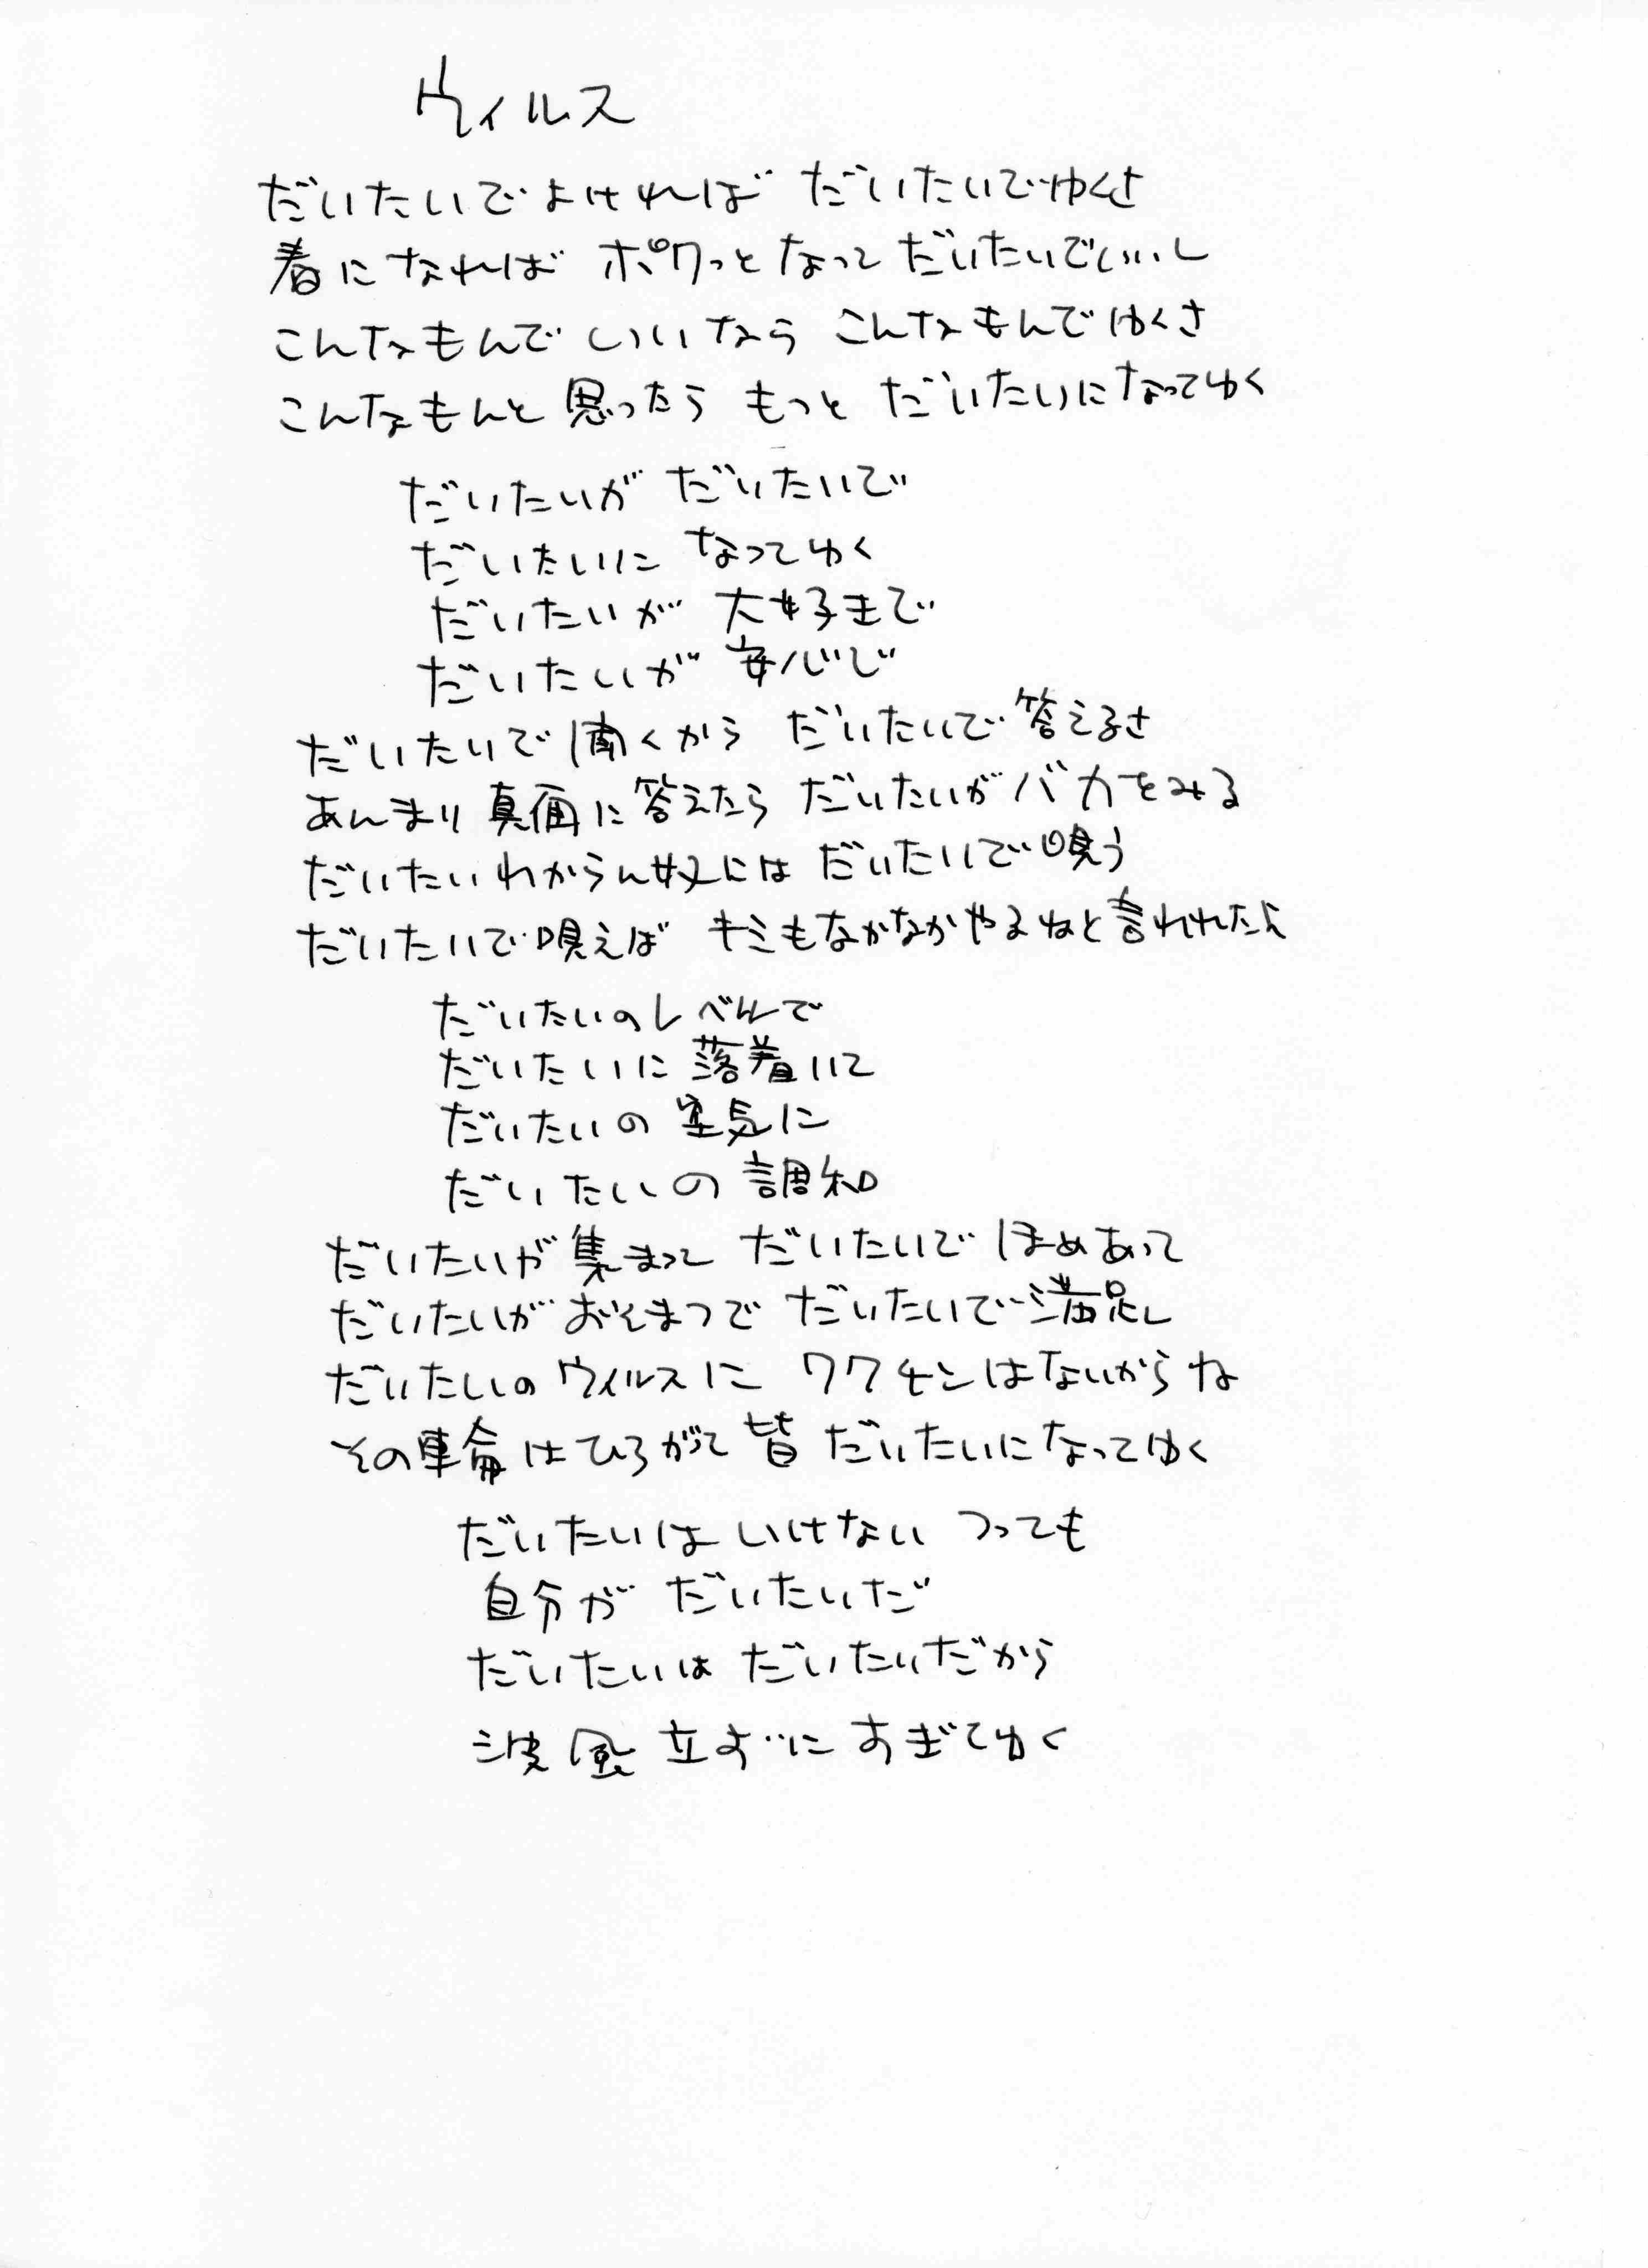 ウィルス
だいたいでよければ だいたいでゆくさ
春になれば ポワっとなって だいたいでいいし
こんなもんで いいなら こんなもんでゆくさ
こんなもんと 思ったら もっと だいたいになってゆく
だいたいが だいたいで
だいたいに なってゆく
だいたいが 大好きで
だいたいが 安心で
だいたいで聞くから だいたいで答えるさ
あんまり真面に答えたら だいたいがバカをみる
だいたいわからん奴には だいたいで唄う
だいたいで唄えば キミもなかなかやるねと言われたら
だいたいのレベルで
だいたいに落着いて
だいたいの空気に
だいたいの調和
だいたいが集まって だいたいで ほめあって
だいたいが おそまつで だいたいで満足し
だいたいのウィルスに ワクチンはないからね
その車輪はひろがって 皆 だいたいになってゆく
だいたいは いけない つっても
自分が だいたいだ
だいたいは だいたいだから
波風 立ずに すぎてゆく